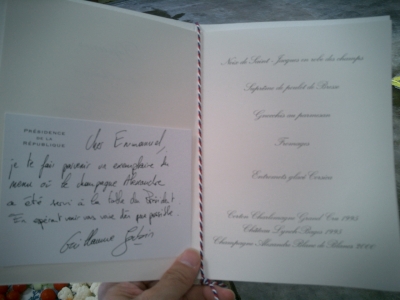 PRÉSIDENCE
DE LA
RÉPUBLIQUE
Cher Emmanuel,
je te fais parvenir un exemplaire du
menu où le champagne Alexandre
a été servi à la table du Président
En espérant vous voir dès que possible.
Guillaume
Noix de Saint-Jacques en robe des champs
Suprême de poulet de Bresse
Gnocchis au parmesan
Fromages
Entremets glacé Corsica
Corton Charlemagne Grand Cru 1995
Château Lynch Bages 1995
Champagne Alexandre Blanc de Blancs 2000